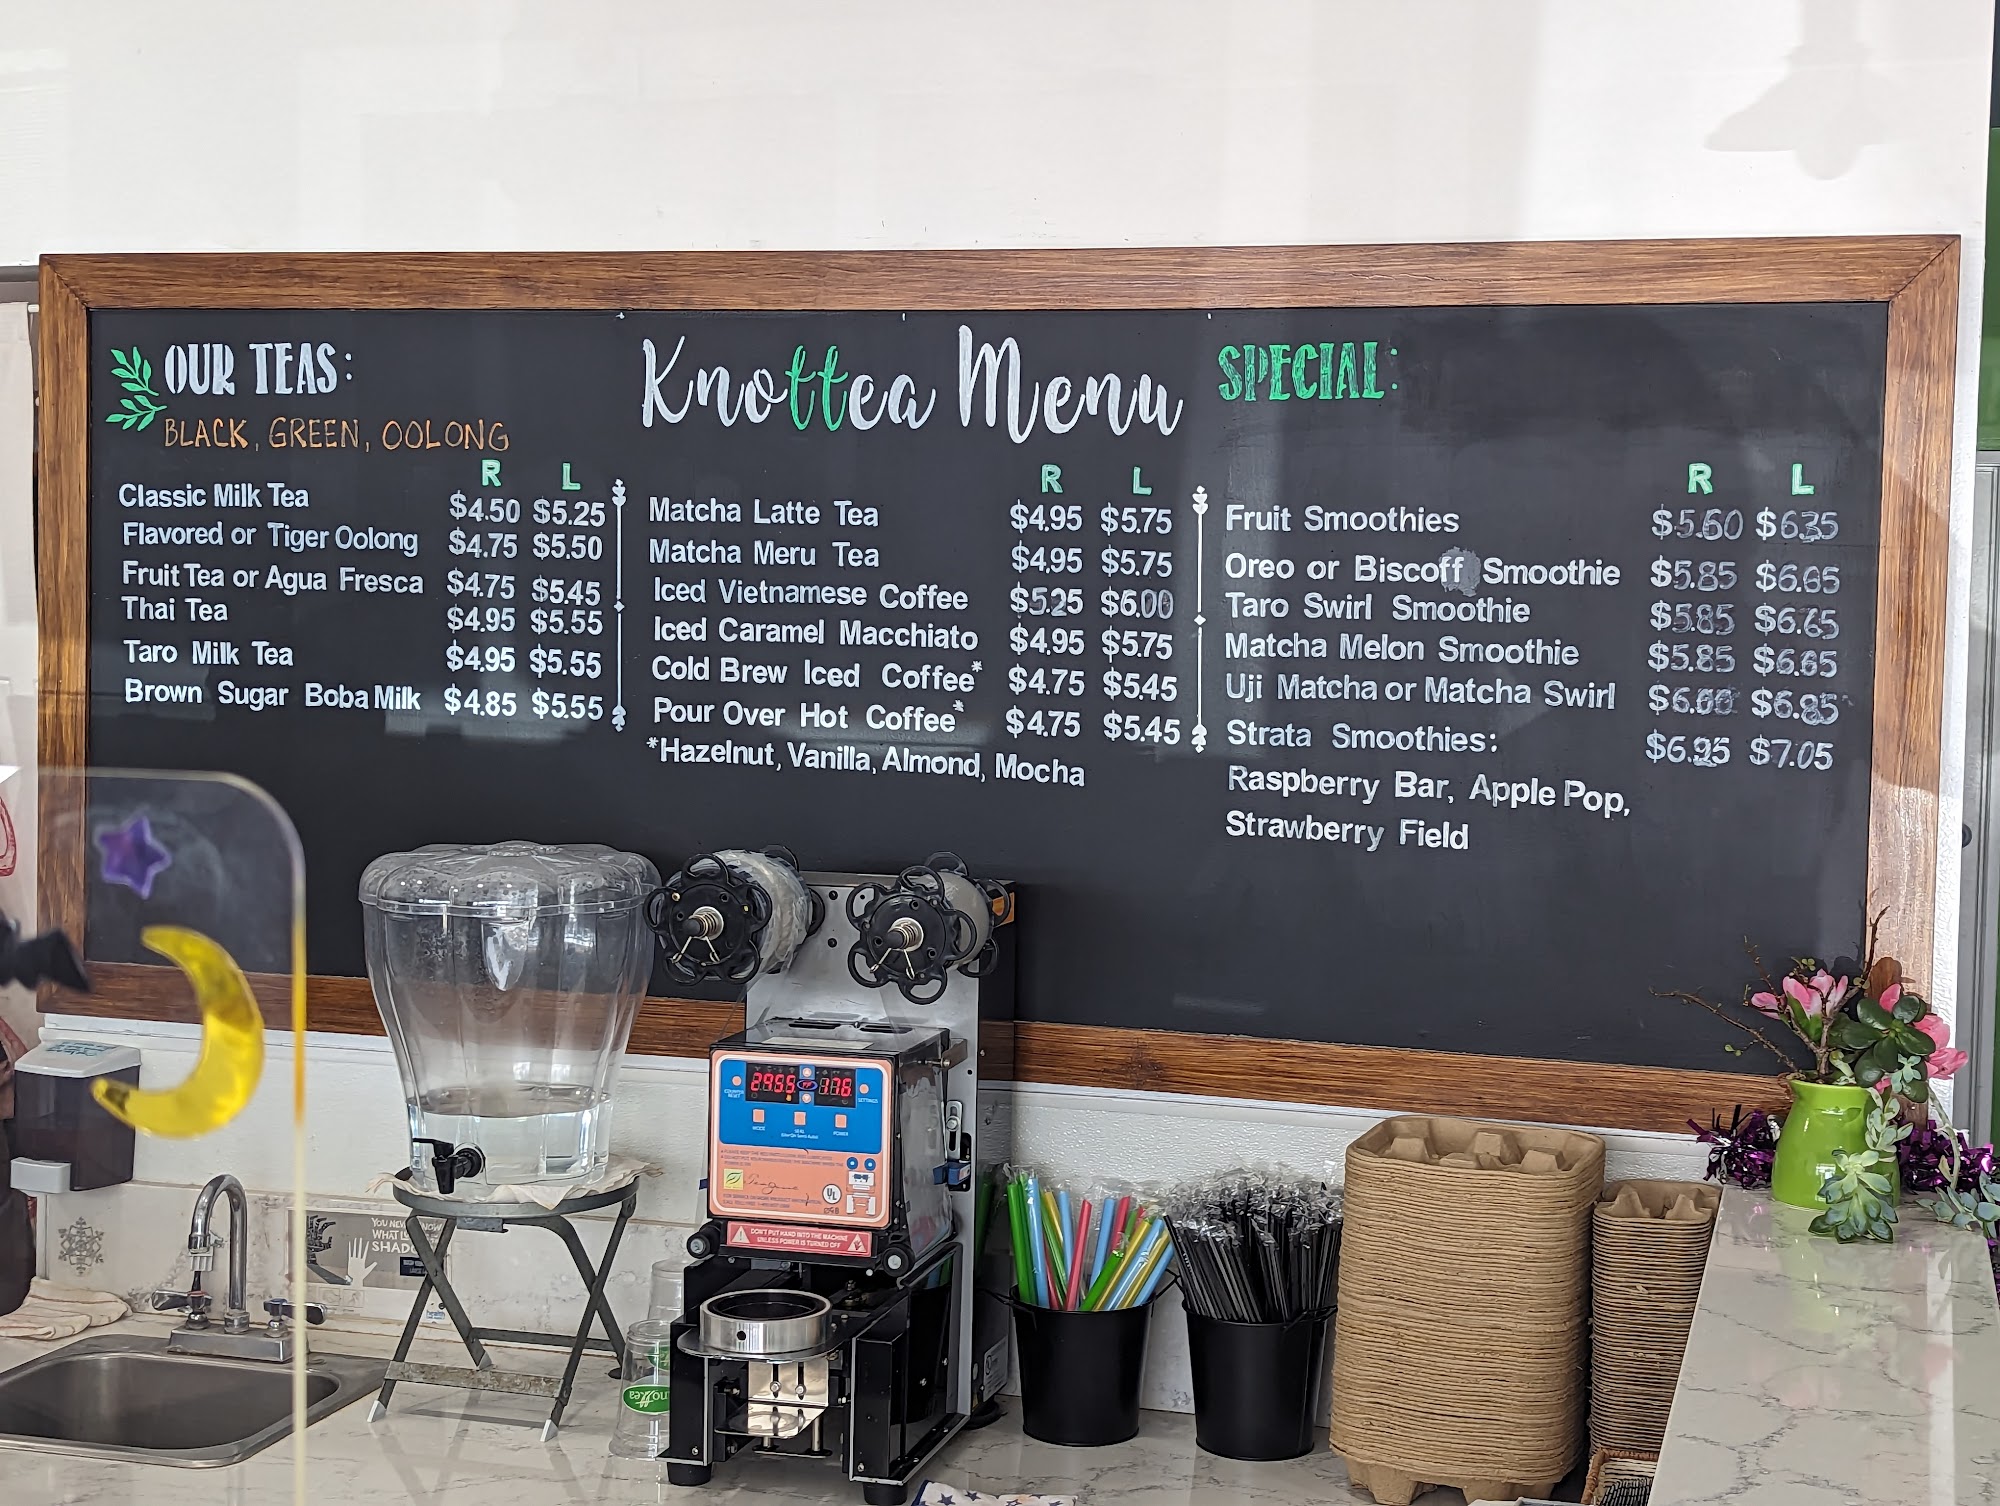 OUR TEAS:
BLACK, GREEN, OOLONG
R L
Classic Milk Tea $4.50 $5.25
Flavored or Tiger Oolong $4.75 $5.50
Fruit Tea or Agua Fresca $4.75 $5.45
Thai Tea $4.95 $5.55
Taro Milk Tea $4.95 $5.55
Brown Sugar Boba Milk $4.85 $5.55
Knottea Menu
R L
Matcha Latte Tea $4.95 $5.75
Matcha Meru Tea $4.95 $5.75
Iced Vietnamese Coffee $5.25 $6.00
Iced Caramel Macchiato $4.95 $5.75
Cold Brew Iced Coffee* $4.75 $5.45
Pour Over Hot Coffee* $4.75 $5.45
*Hazelnut, Vanilla, Almond, Mocha
SPECIAL:
R L
Fruit Smoothies $5.60 $6.35
Oreo or Biscoff Smoothie $5.85 $6.65
Taro Swirl Smoothie $5.85 $6.65
Matcha Melon Smoothie $5.85 $6.65
Uji Matcha or Matcha Swirl $6.00 $6.85
Strata Smoothies: $6.25 $7.05
Raspberry Bar, Apple Pop,
Strawberry Field
2955 176
COUNTER RESET
SETTINGS
MODE
SEAL
POWER
UL
DON'T PUT HAND INTO THE MACHINE
UNLESS POWER IS TURNED OFF
YOU NEV NOW
WHAT L
SHADO